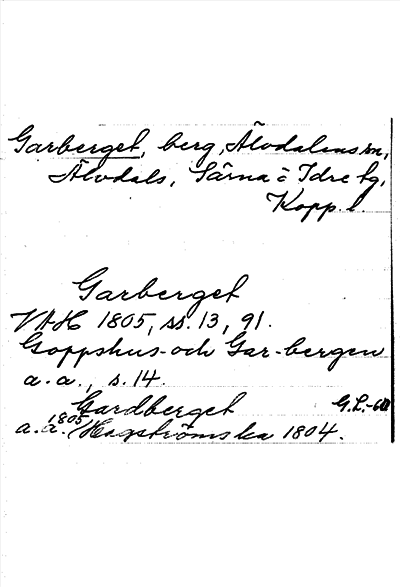 Garberget, berg, Älvdalens sn,
Älvdals, Särna o Idre tg,
Kopp. l.
Garberget
VAH 1805, ss. 13, 91.
Goppshus- och Gar-bergen
a. a., s. 14.
Gardberget G.L.-60
a. a. 1805 Hagströms ka 1804.